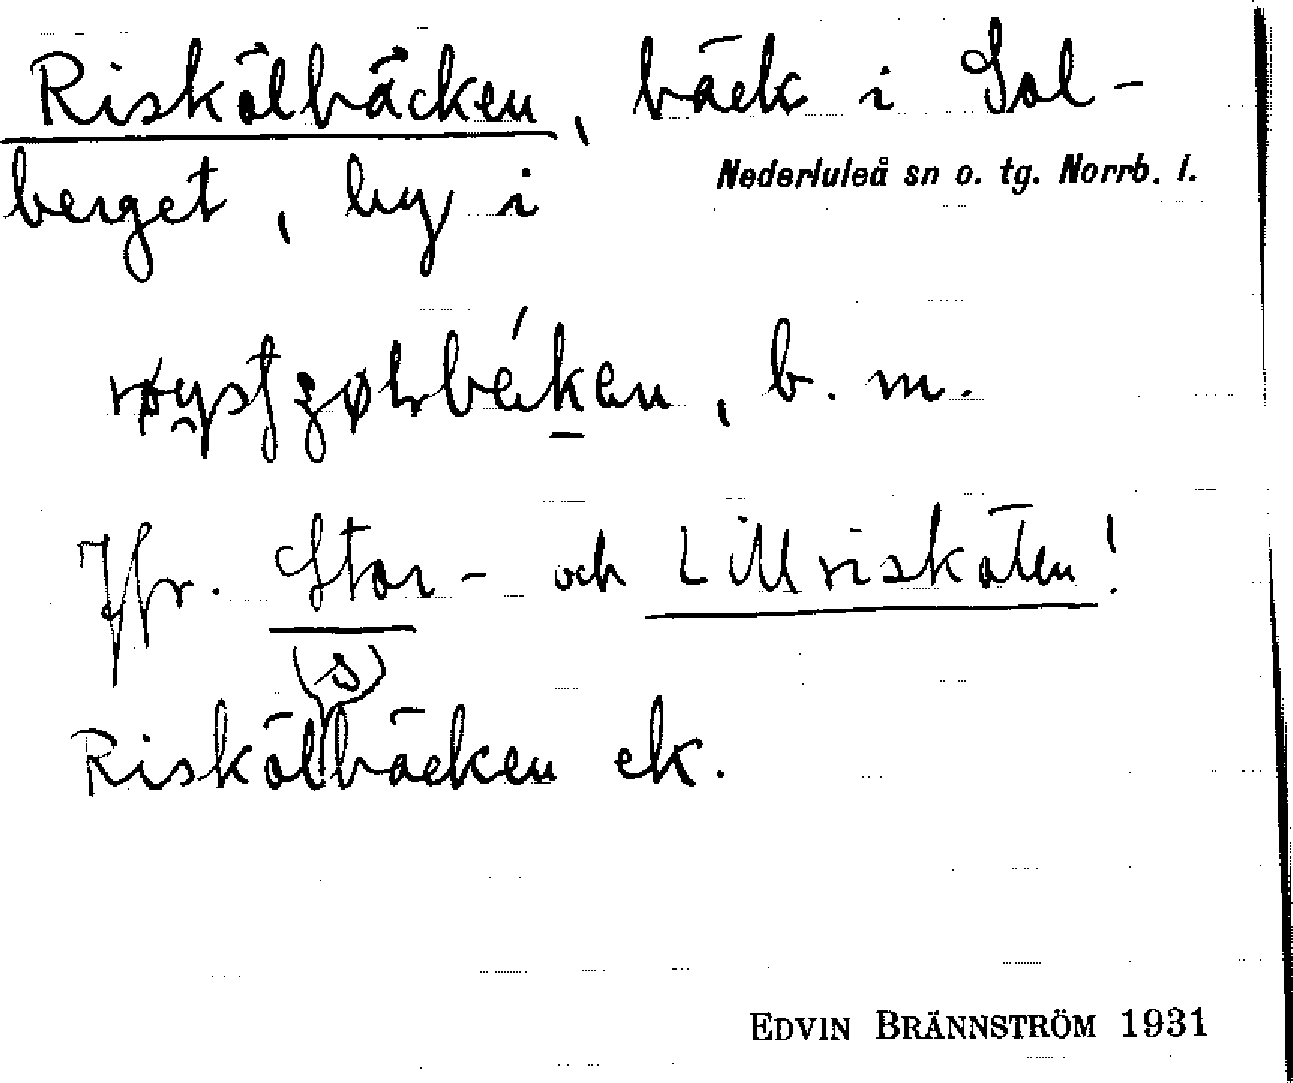 Riskölbäcken, bäck i Sol-
berget, by i Nederluleå sn o. tg. Norrb. l.
b. m.
Jfr. Stor- och Lillriskölen!
(s)
Riskölbäcken ek.
EDVIN BRÄNNSTRÖM 1931